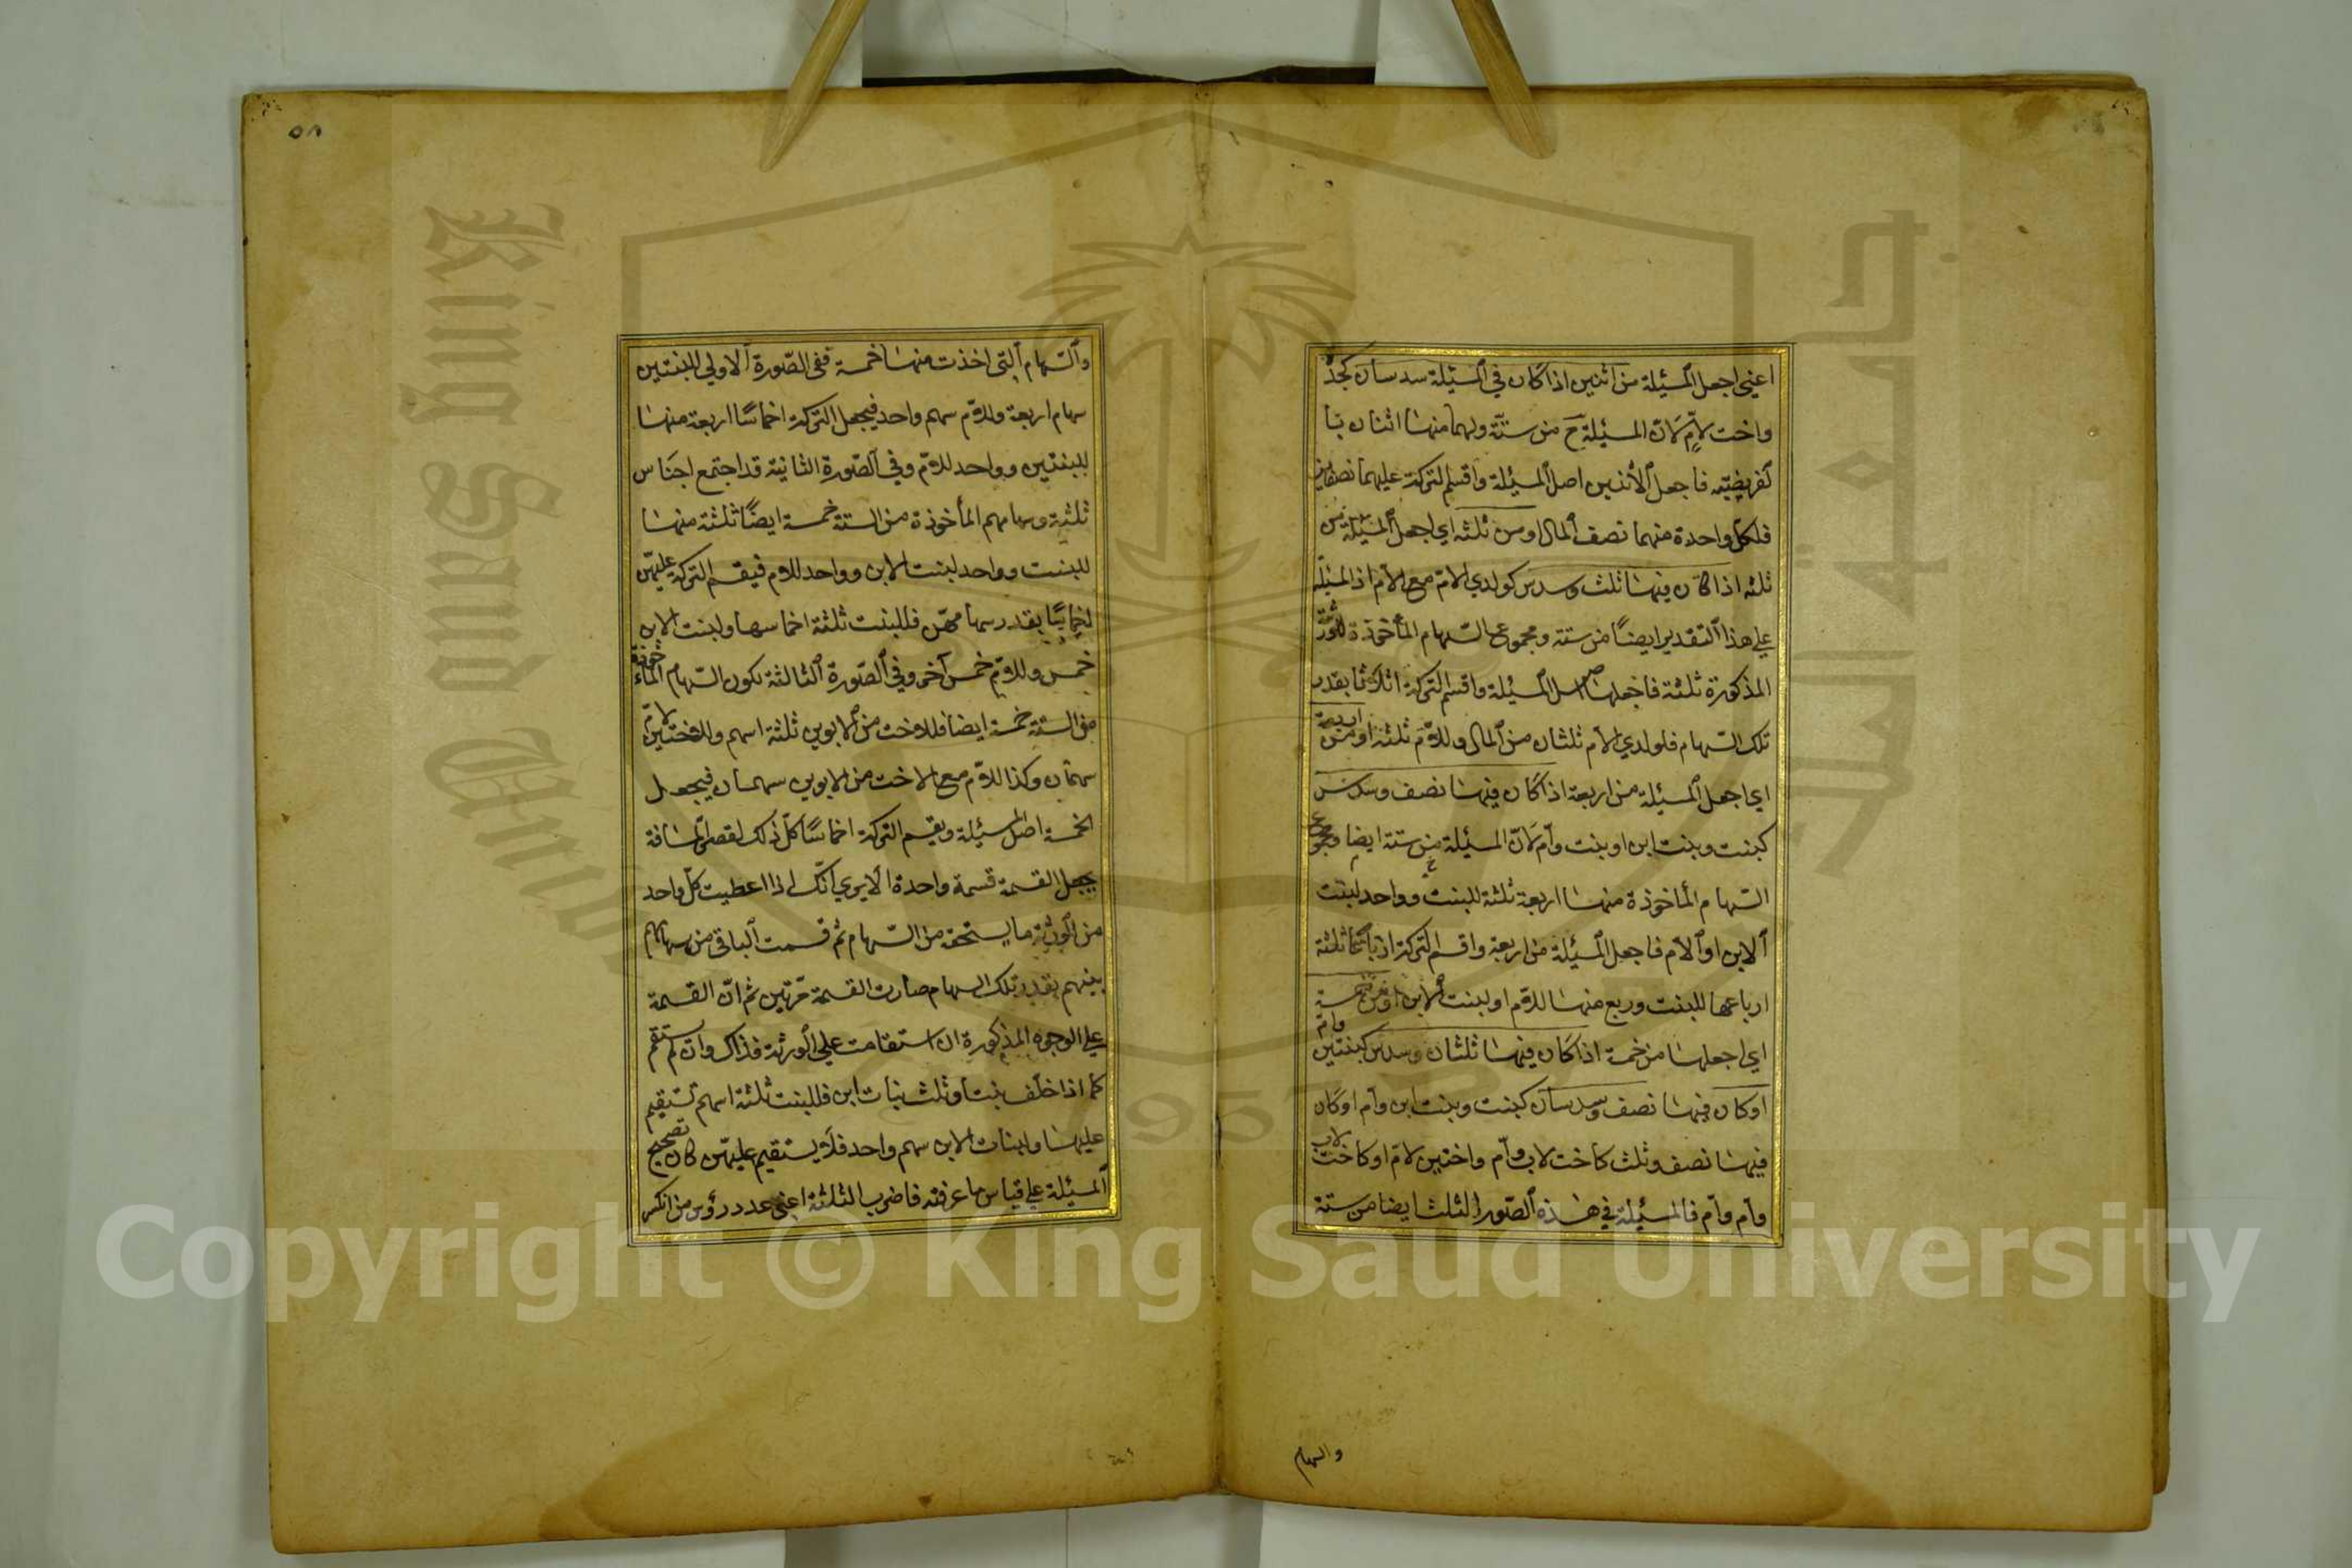 اعني اجعل المسئلة من اثنين اذا كان في المسئلة سدسان كجدة
واخت لام لان المسئلة ح من ستة ولهما منها اثنان
فاجعل الاثنين اصل المسئلة واقسم التركة عليهما نصفين
فلكل واحدة منهما نصف المال او من ثلثه اي اجعل المسئلة من
ثلثه اذا كان فيها ثلث وسدس كولدي الام مع الام اذ المسئلة
علي هذا التقدير ايضا من ستة ومجموع السهام المأخوذة للورثة
المذكورة ثلثة فاجعلها اصل المسئلة واقسم التركة اثلاثا بقدر
تلك السهام فلولدي الام ثلثان من المال وللام ثلثه او من اربعة
اي اجعل المسئلة من اربعة اذا كان فيها نصف وسدس
كبنت وبنت ابن او بنت وام لان المسئلة من ستة ايضا ومجموع
السهام المأخوذة منها اربعة ثلثة للبنت وواحد لبنت
الابن او الام فاجعل المسئلة من اربعة واقسم التركة ارباعا ثلثة
ارباعها للبنت وربع منها للام او لبنت الابن او من خمسة
اي اجعلها من خمسة اذا كان فيها ثلثان وسدس كبنتين وام
او كان فيها نصف وسدسان كبنت وبنت ابن وام او كان
فيها نصف وثلث كاخت لاب وام واختين لام او كاخت لاب
وام وام فالمسئلة في هذه الصور الثلث ايضا من ستة
والسهام
٥٨
والسهام التي اخذت منها خمسة ففي الصورة الاولي للبنتين
سهام اربعة وللام سهم واحد فيجعل التركة اخماسا اربعة منها
للبنتين وواحد للام وفي الصورة الثانية قد اجتمع اجناس
ثلثة وسهامهم المأخوذة من الستة خمسة ايضا ثلثة منها
للبنت وواحد لبنت الابن وواحد للام فيقسم التركة عليهن
اخماسا بقدر سهامهن فللبنت ثلثة اخماسها ولبنت الابن
خمس وللام خمس آخر وفي الصورة الثالثة يكون السهام المأخوذة
من الستة خمسة ايضا فللاخت من الابوين ثلثة اسهم وللاختين لام
سهمان وكذا للام مع الاخت من الابوين سهمان فيجعل
الخمسة اصل المسئلة ويقسم التركة اخماسا كل ذلك لقصر المسافة
بجعل القسمة قسمة واحدة الا يري انك اذا اعطيت كل واحد
من الورثة ما يستحقه من السهام ثم قسمت الباقي من سهامهم
بينهم بقدر تلك السهام صارت القسمة مرتين ثم ان القسمة
علي الوجوه المذكورة ان استقامت علي الورثة فذاك وان لم تستقم
كما اذا خلف بنتا وثلث بنات ابن فللبنت ثلثة اسهم تستقيم
عليها ولبنات الابن سهم واحد فلا يستقيم عليهن كان تصحيح
المسئلة علي قياس ما عرفته فاضرب الثلثة اعني عدد رؤس من انكسر
Copyright © King Saud University